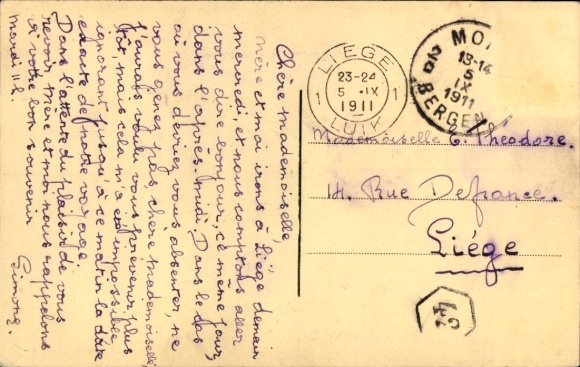 Chère mademoiselle,
mère et moi irons à Liège demain
mercredi, et nous comptons aller
vous dire bonjour, ce même jour,
dans l'après-midi. Dans le cas
où vous devriez vous absenter, ne
vous gênez pas, chère mademoiselle,
j'aurais voulu vous prévenir plus
tôt, mais cela m'a été impossible
ignorant jusqu'à ce matin la date
exacte de notre voyage.
Dans l'attente du plaisir de vous
revoir, mère et moi nous rappelons
à votre bon souvenir
Simone.
mardi 11 h.
LIEGE
23-24
1 5 IX 1
1911
LUIK
MO
13-14
5
IX
1911
BERGEN
2
Mademoiselle C. Théodore.
14. Rue Defrance.
Liége
42